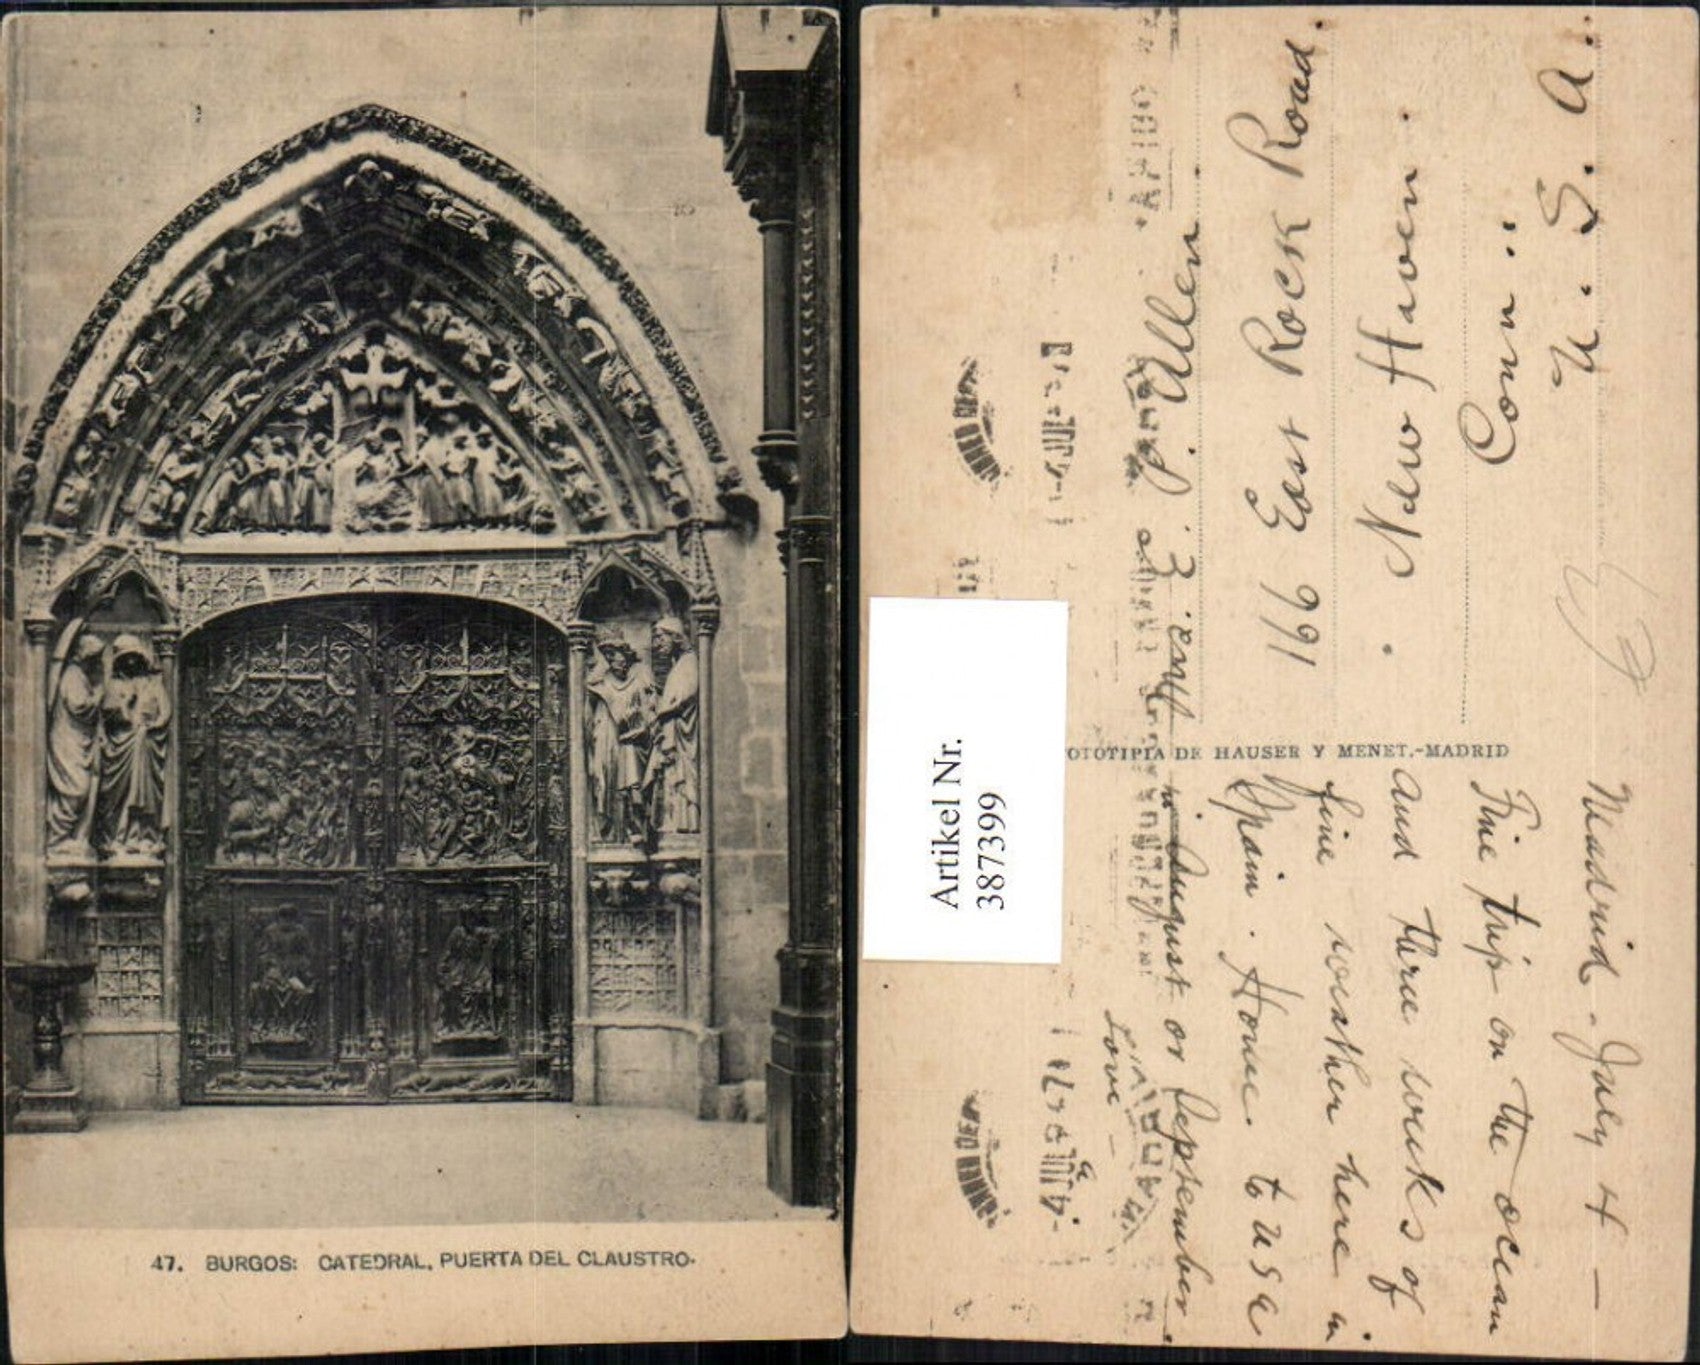 47. BURGOS: CATEDRAL, PUERTA DEL CLAUSTRO.
Artikel Nr.
3873399
OTOTIPIA DE HAUSER Y MENET.-MADRID
Madrid - July 4 -
Fine trip on the ocean
and three weeks of
fine weather here in
Spain. Home to USA
in August or September.
Love -
Mrs. E. P. Allen
196 East Rock Road.
New Haven.
Conn.
U. S. A.